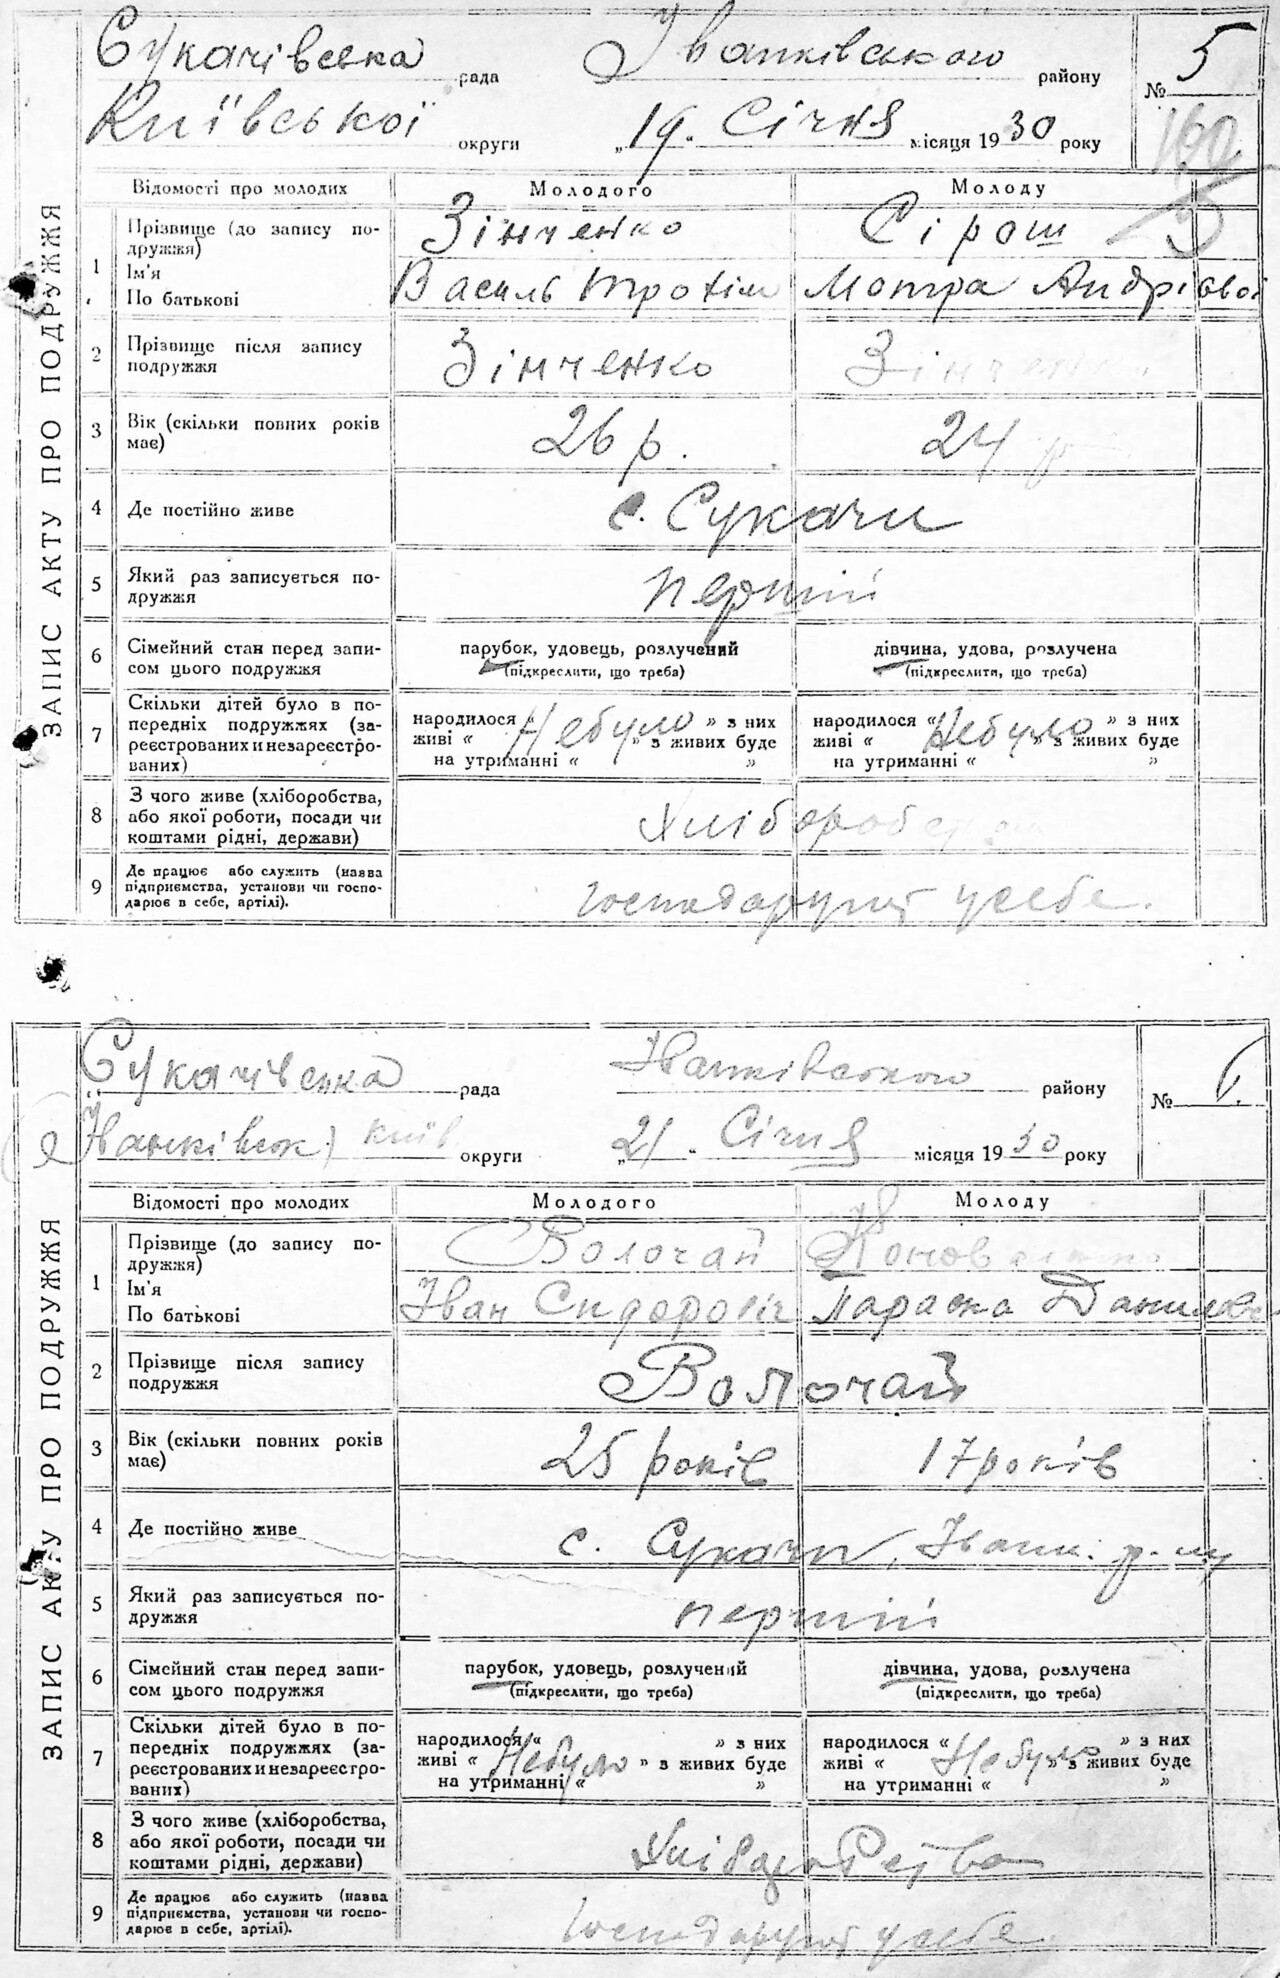 ЗАПИС АКТУ ПРО ПОДРУЖЖЯ
Сукачівська рада Іванківського району № 5
Київської округи „19“ Січня місяця 1930 року
160
Відомості про молодих Молодого Молоду
1 Прізвище (до запису по-
дружжя)
Зінченко Сіраш
Ім'я
По батькові
Василь Трохим Мотра Андрієвої
2 Прізвище після запису
подружжя
Зінченко Зінченко
3 Вік (скільки повних років
має)
26 р. 24 р
4 Де постійно живе с. Сукачи
5 Який раз записується по-
дружжя
перший
6 Сімейний стан перед запи-
сом цього подружжя
парубок, удовець, розлучений
(підкреслити, що треба)
дівчина, удова, розлучена
(підкреслити, що треба)
7 Скільки дітей було в по-
передніх подружжях (за-
реєстрованих и незареєстро-
ваних)
народилося “ Небуло ” з них
живі “ ” з живих буде
на утриманні “ ”
народилося “ Небуло ” з них
живі “ ” з живих буде
на утриманні “ ”
8 З чого живе (хліборобства,
або якої роботи, посади чи
коштами рідні, держави)
9 Де працює або служить (назва
підприємства, установи чи госпо-
дарює в себе, артілі).
господарує у себе.
ЗАПИС АКТУ ПРО ПОДРУЖЖЯ
Сукачівська рада Іванківського району № 6.
Київ округи „21“ Січня місяця 1930 року
Відомості про молодих Молодого Молоду
1 Прізвище (до запису по-
дружжя)
Волочай
Ім'я
По батькові
Іван Сидорович Параска Данилов
2 Прізвище після запису
подружжя
Волочай
3 Вік (скільки повних років
має)
25 років 17 років
4 Де постійно живе с. Сукачи, Іванк. р-ну
5 Який раз записується по-
дружжя
перший
6 Сімейний стан перед запи-
сом цього подружжя
парубок, удовець, розлучений
(підкреслити, що треба)
дівчина, удова, розлучена
(підкреслити, що треба)
7 Скільки дітей було в по-
передніх подружжях (за-
реєстрованих и незареєстро-
ваних)
народилося “ ” з них
живі “ Небуло ” з живих буде
на утриманні “ ”
народилося “ ” з них
живі “ Небуло ” з живих буде
на утриманні “ ”
8 З чого живе (хліборобства,
або якої роботи, посади чи
коштами рідні, держави)
Хліборобства
9 Де працює або служить (назва
підприємства, установи чи госпо-
дарює в себе, артілі).
господарує у себе.